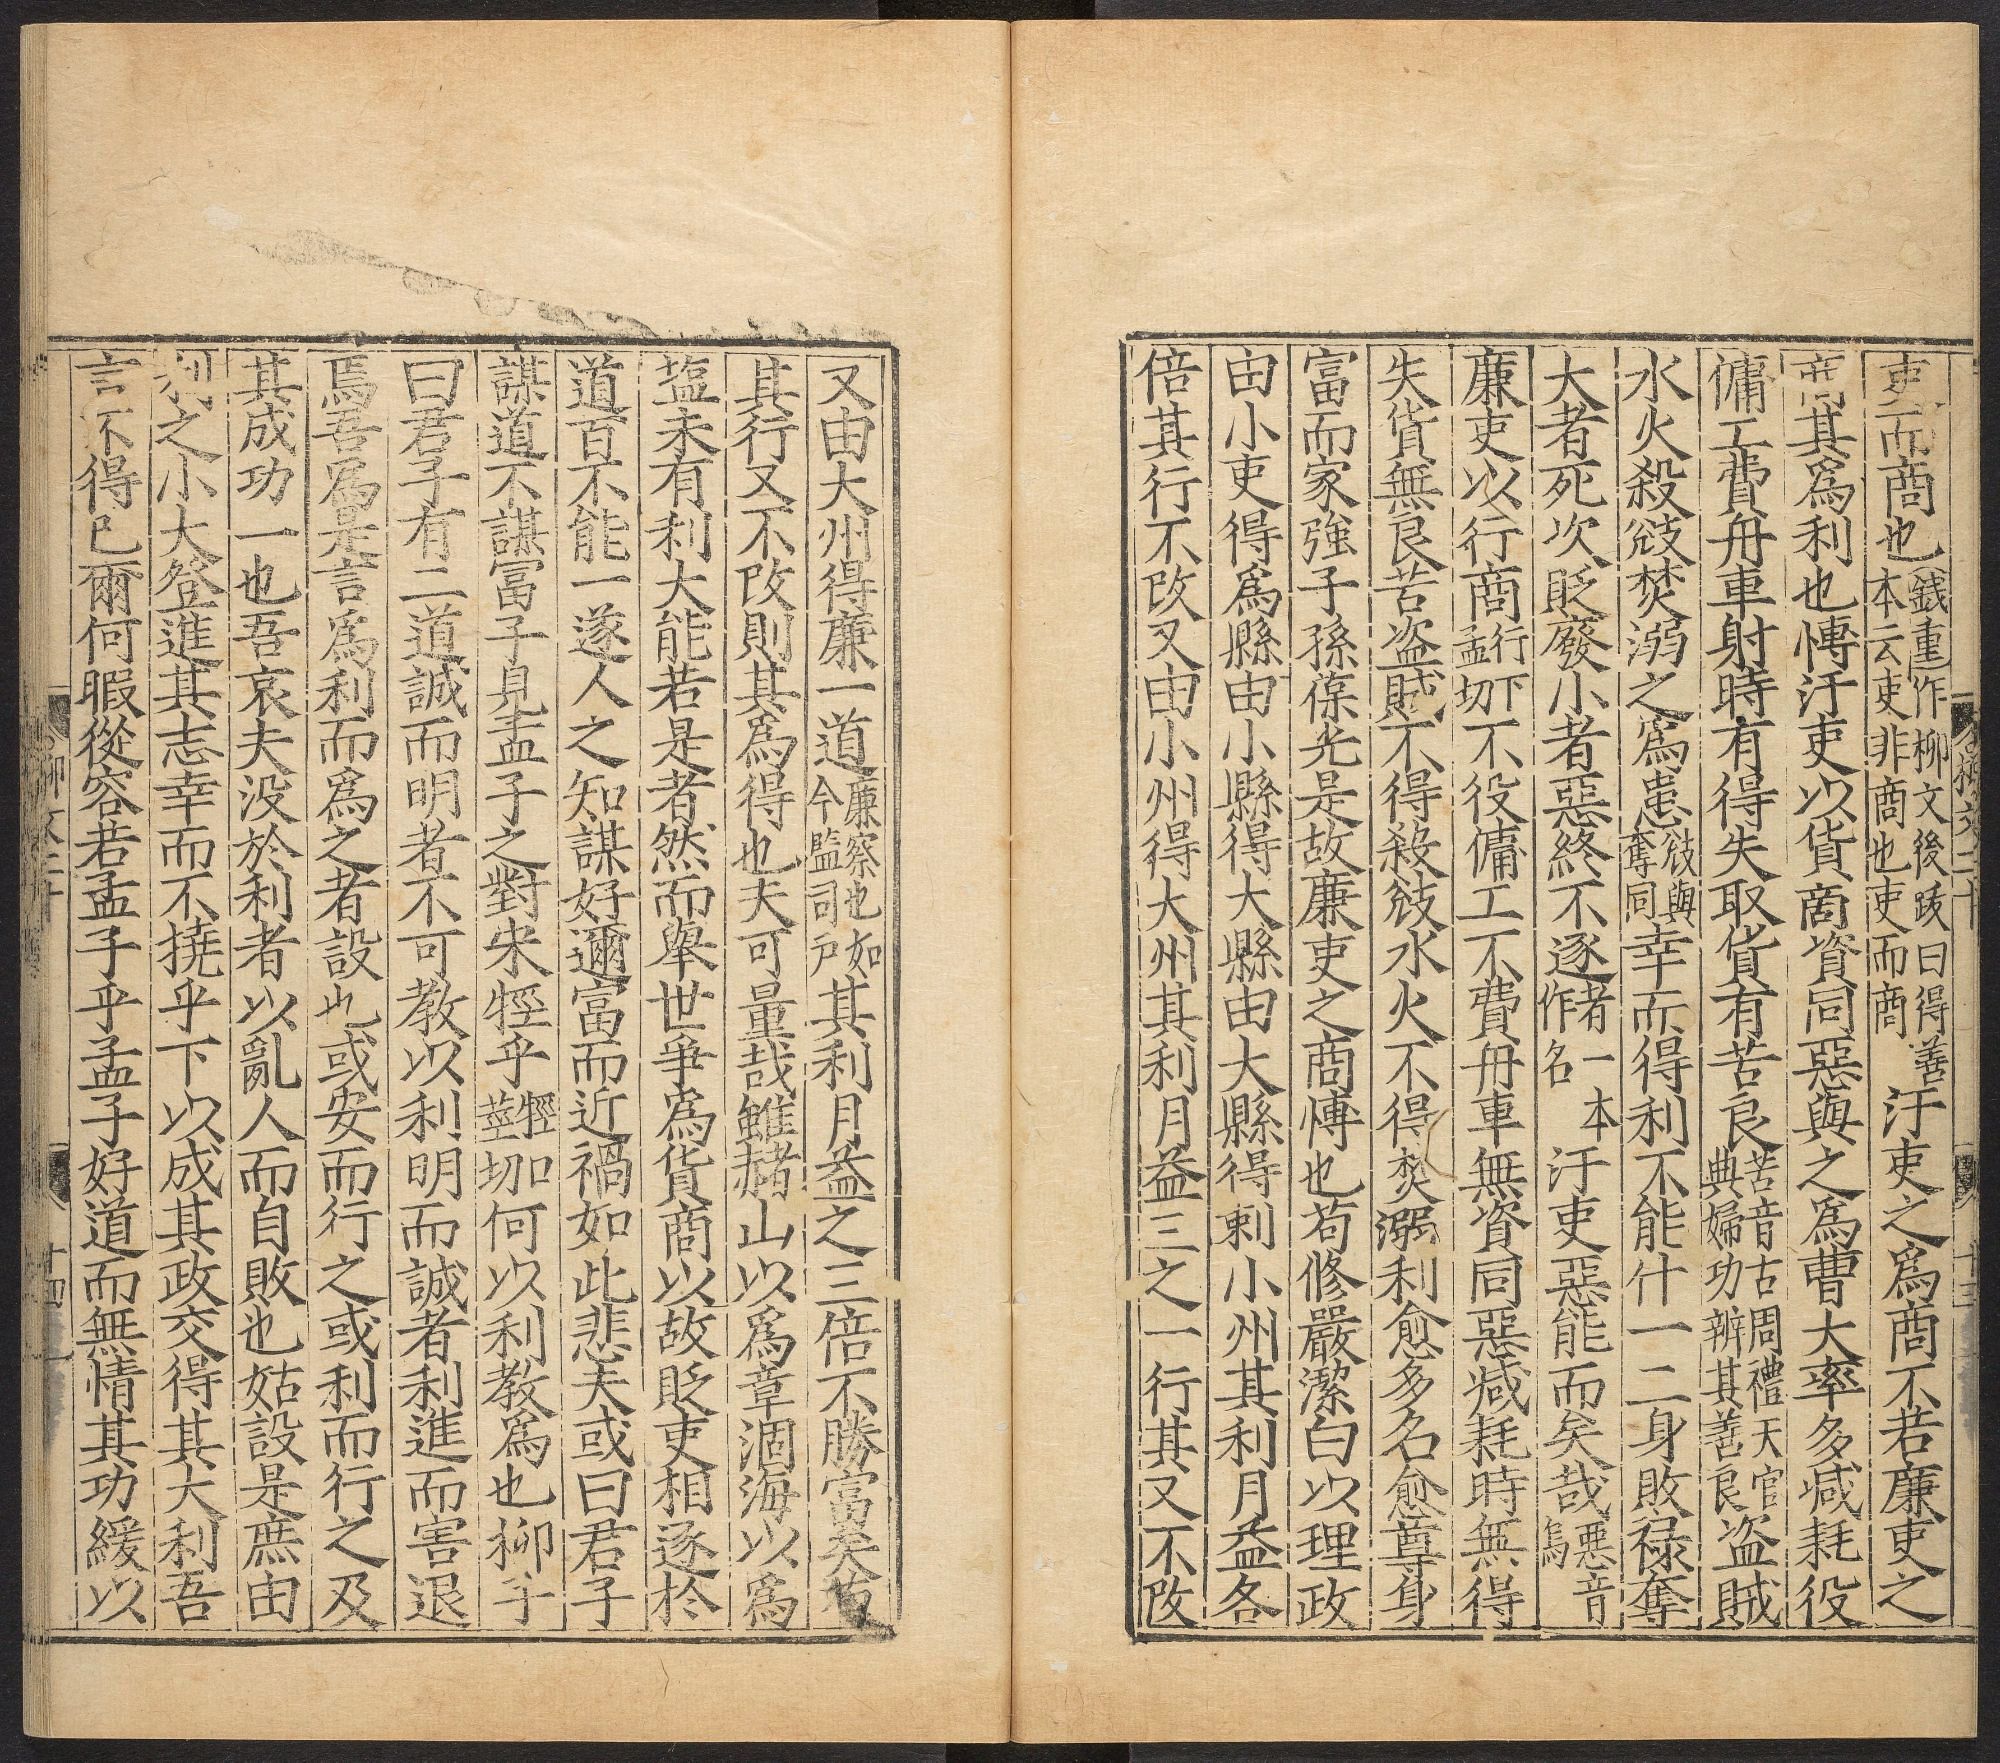 吏而商也錢重作柳文後䟦曰得善本云吏非商也吏而商汙吏之爲商不若廉吏之
商其爲利也愽汙吏以貨商資同惡與之爲曹大率多減耗役
傭工費舟車射時有得失取貨有苦良苦音古周禮天官典婦功辨其善良盜賊
水火殺敓焚溺之爲患敓與奪同幸而得利不能什一二身敗祿奪
大者死次貶廢小者惡終不逐者一本作名汙吏惡能而矣哉惡音烏
廉吏以行商行下孟切不役傭工不費舟車無資同惡減耗時無得
失貨無良苦盜賊不得殺敓水火不得焚溺利愈多名愈尊身
富而家強子孫葆光是故廉吏之商愽也苟修嚴潔白以理政
由小吏得爲縣由小縣得大縣由大縣得刺小州其利月益各
倍其行不改又由小州得大州其利月益三之一行其又不改
又由大州得廉一道廉察也如今監司尸其利月益之三倍不勝富矣苟
其行又不改則其爲得也夫可量哉雖赭山以爲章涸海以爲
塩未有利大能若是者然而舉世爭爲貨商以故貶吏相逐於
道百不能一遂人之知謀好邇富而近禍如此悲夫或曰君子
謀道不謀富子見孟子之對宋牼乎牼口莖切何以利教爲也柳子
曰君子有二道誠而明者不可教以利明而誠者利進而害退
焉吾爲是言爲利而爲之者設也或安而行之或利而行之及
其成功一也吾哀夫没於利者以亂人而自敗也姑設是庶由
利之小大登進其志幸而不撓乎下以成其政交得其大利吾
言不得已爾何暇從容若孟子乎孟子好道而無情其功緩以
柳文二十
十三
柳文二十
十四